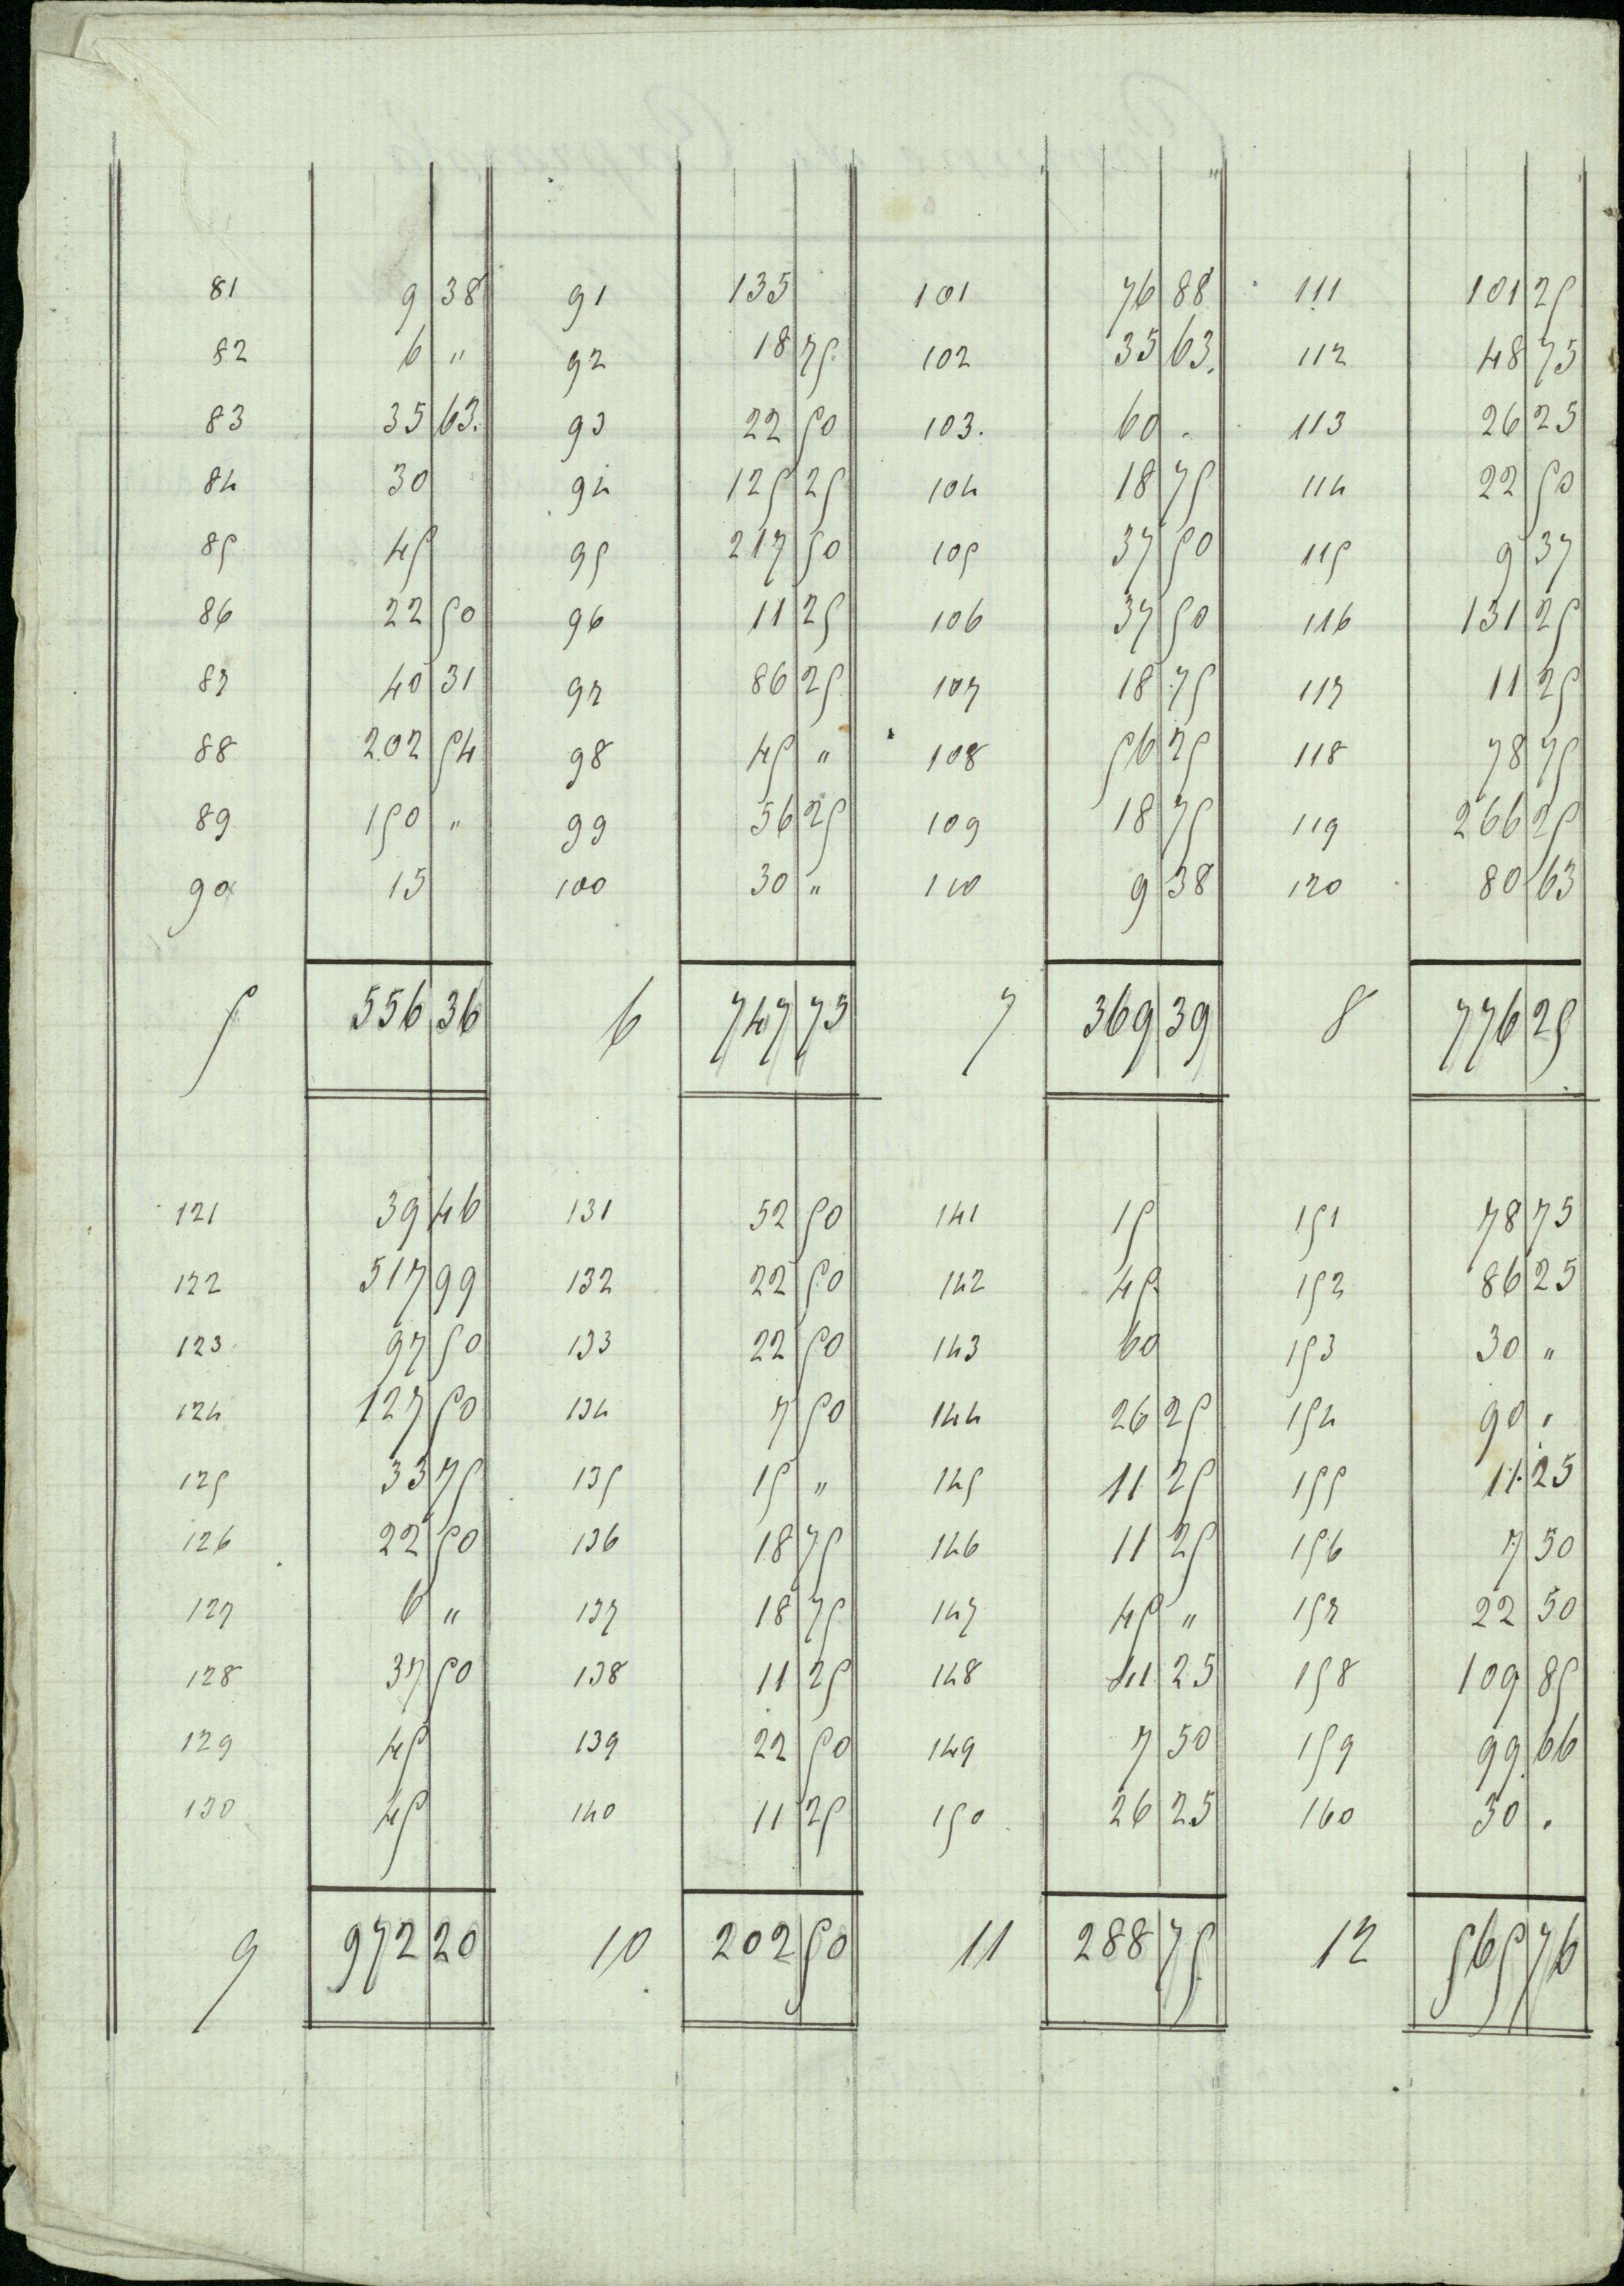 81 9 38 91 135 101 76 88 111 101 25
82 6 " 92 18 75 102 35 63. 112 48 75
83 35 63. 93 22 50 103. 60 . 113 26 25
84 30 94 125 25 104 18 75 114 22 50
85 45 95 217 50 105 37 50 115 9 37
86 22 50 96 11 25 106 37 50 116 131 25
87 40 31 97 86 25 107 18 75 117 11 25
88 202 54 98 45 " 108 56 25 118 78 75
89 150 " 99 56 25 109 18 75 119 266 25
90 15 100 30 " 110 9 38 120 80 63
5 556 36 6 747 75 7 369 39 8 776 25
121 39 46 131 52 50 141 15 151 78 75
122 517 99 132 22 50 142 45 152 86 25
123 97 50 133 22 50 143 60 153 30 "
124 127 50 134 7 50 144 26 25 154 90 "
125 33 75 135 15 " 145 11 25 155 11 25
126 22 50 136 18 75 146 11 25 156 7 50
127 6 " 137 18 75 147 45 " 157 22 50
128 37 50 138 11 25 148 41 25 158 109 85
129 45 139 22 50 149 7 50 159 99 66
130 45 140 11 25 150 26 25 160 30 .
9 972 20 10 202 50 11 288 75 12 565 76